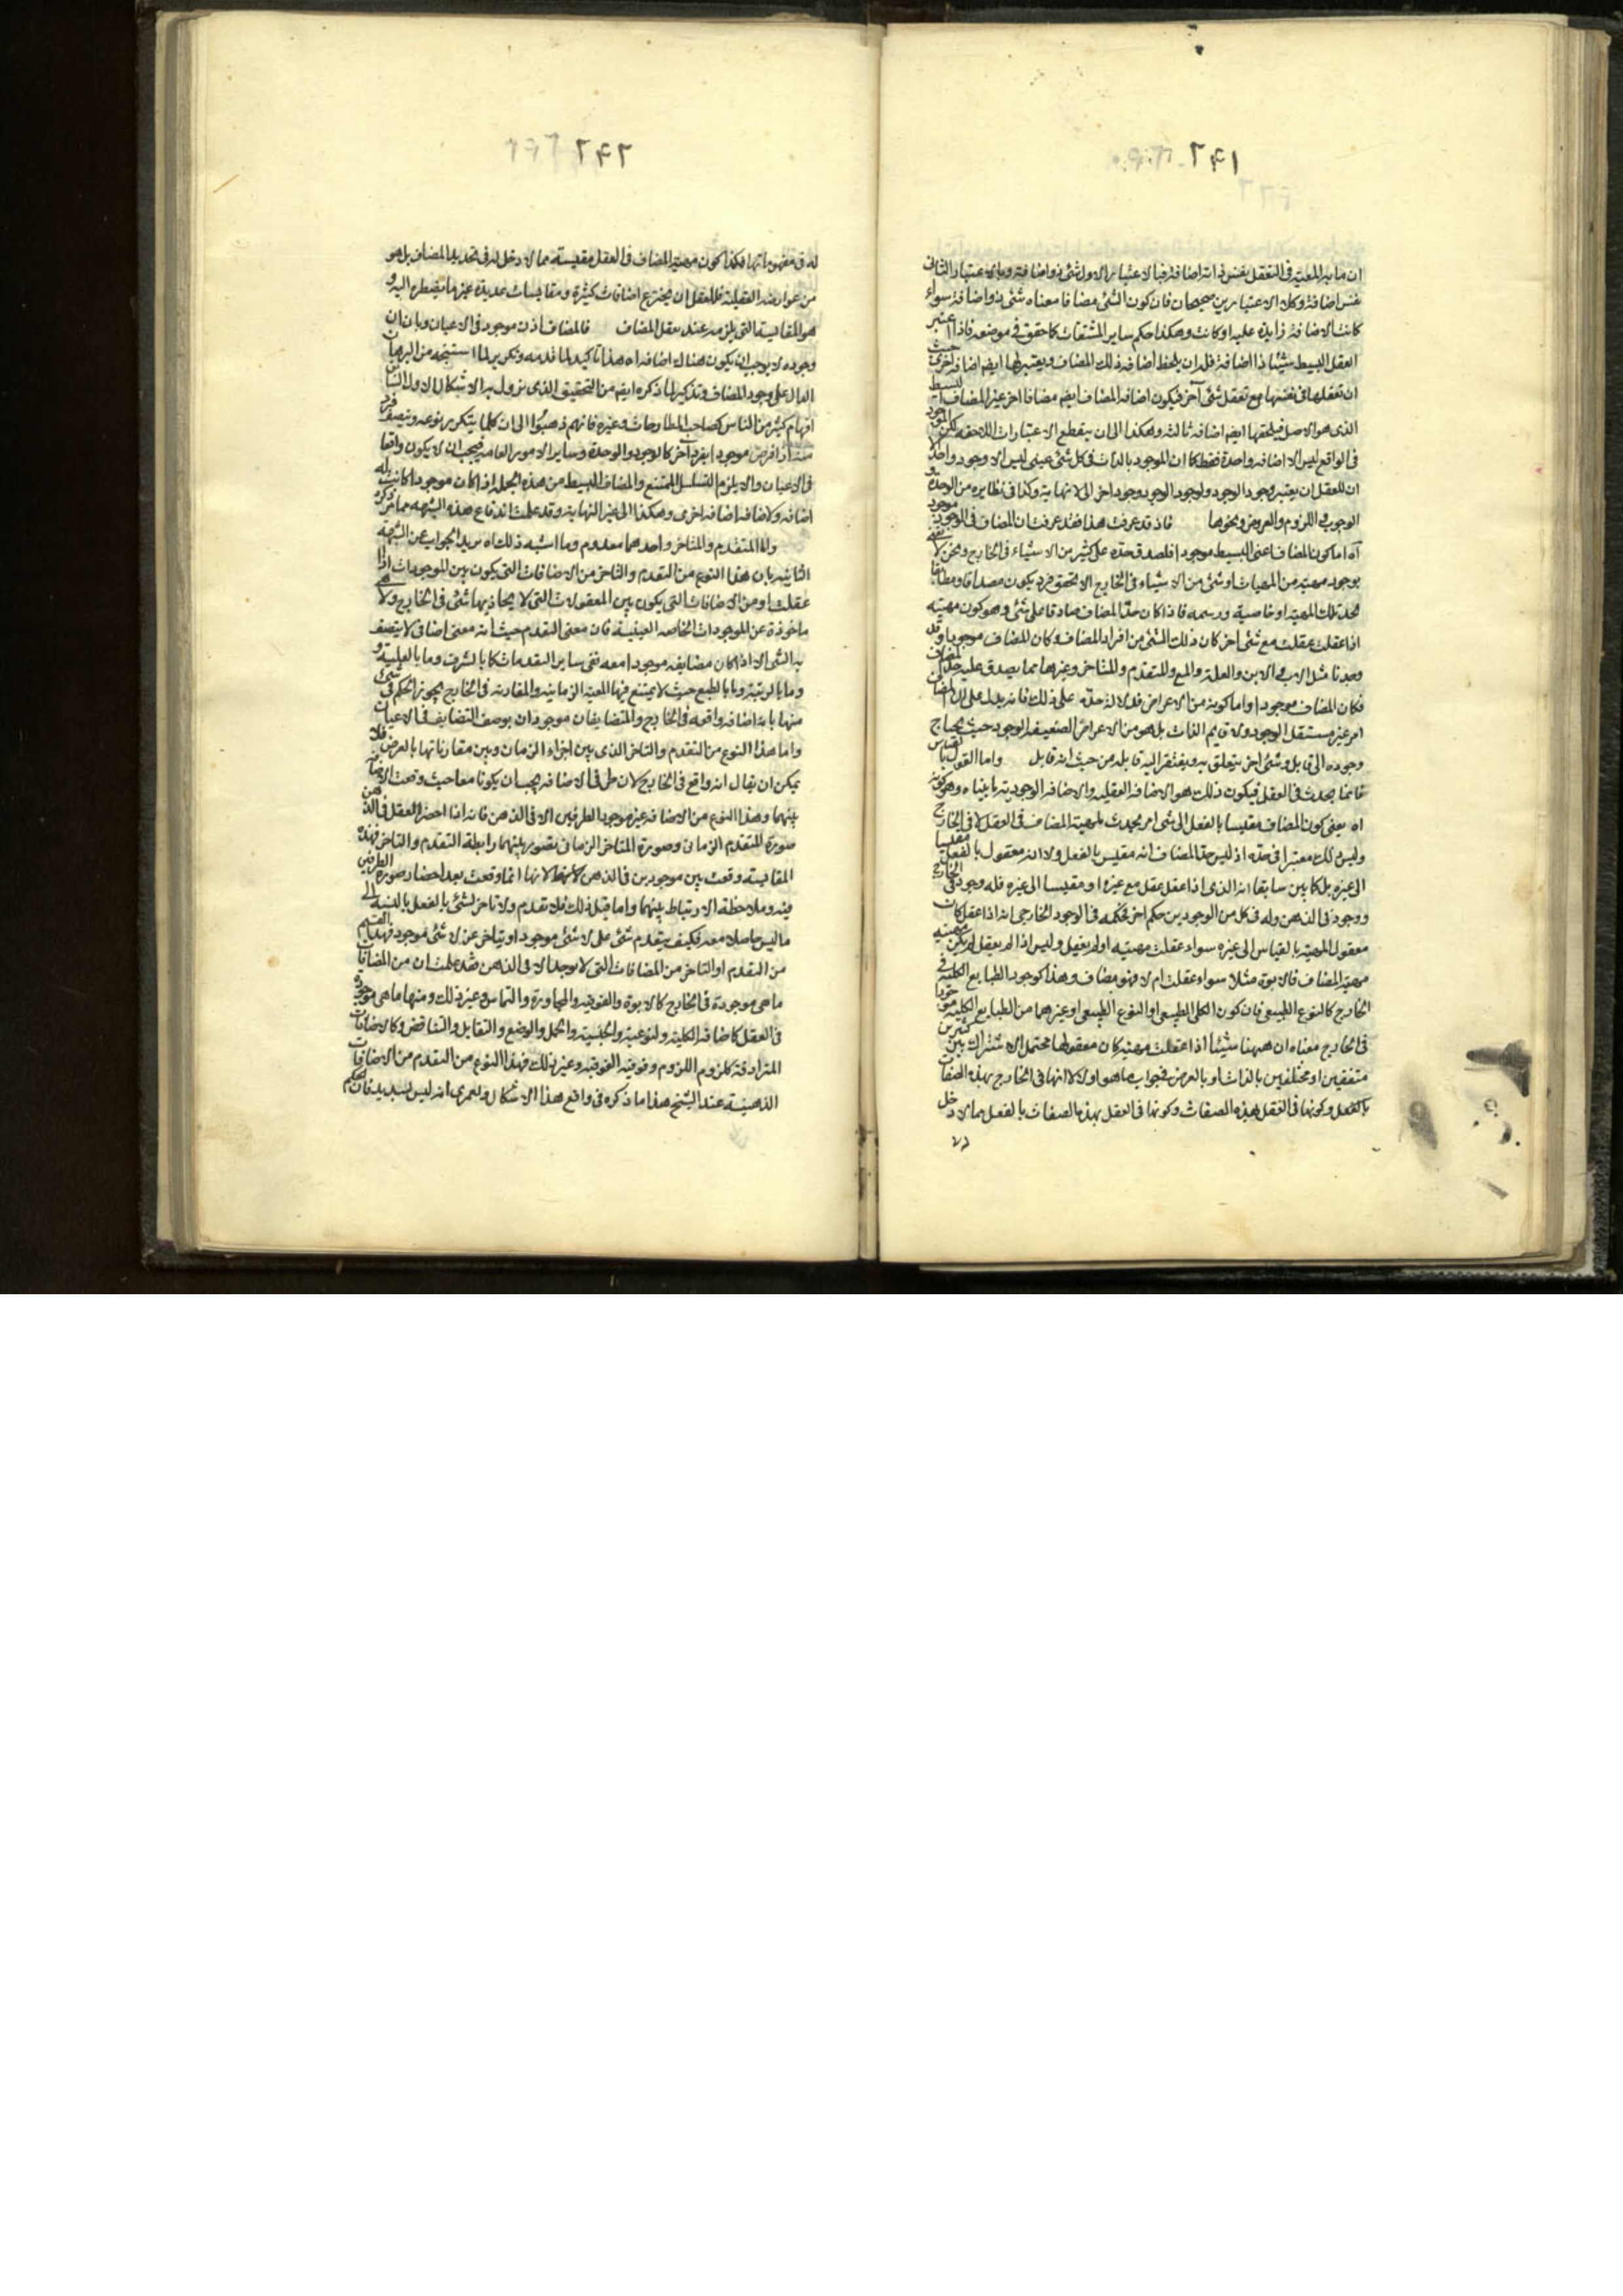 ٢٩١
ان ما به المعية فى التعقل بنفس ذاته اضافة فبالاعتبار الاول شئ ذو اضافة وبالاعتبار الثانى
نفس اضافة وكلا الاعتبارين صحيحان فان كون الشئ مضافا معناه شئ ذو اضافة سواء
كانت الاضافة زايدة عليه او كانت وهكذا حكم ساير المشتقات كما حقق فى موضعه فاذا اعتبر
العقل البسيط شيئا ذا اضافة فله ان يلحظ اضافة ذلك المضاف ويعتبر لها ايضا اضافة اخرى حيث
ان تعقلها فى نفسها مع تعقل شئ آخر فيكون اضافة المضاف ايضا مضافا اخر غير المضاف البسيط
الذى هو الاصل فيلحقها ايضا اضافة ثالثة وهكذا الى ان ينقطع الاعتبارات اللاحقة لكن الموجود
فى الواقع ليس الا اضافة واحدة فقط كما ان الموجود بالذات فى كل شئ عينى ليس الا وجود واحد الا
ان للعقل ان يعتبر وجود الوجود ولوجود الوجود وجودا اخر الى لا نهاية وكذا فى نظايره من الوحدة و
الوجوب واللزوم والعروض ونحوها فاذ قد عرفت هذا فقد عرفت ان المضاف فى الوجود موجود
آه اما كون المضاف اعنى البسيط موجودا فلصدق حده على كثير من الاشياء فى الخارج ونحن لا نعنى
بوجود مهية من المهيات او شئ من الاشياء فى الخارج الا تحقق فرد يكون مصداقا ومطابقا
لحد تلك المهية او خاصية ورسمه فاذا كان حد المضاف صادقا على شئ وهو كون مهيته
اذا عقلت عقلت مع شئ اخر كان ذلك الشئ من افراد المضاف وكان المضاف موجودا وقد
وجدنا مثل الاب والابن والعلة والمع والمتقدم والمتاخر وغيرها مما يصدق عليه حد المضاف
فكان المضاف موجودا واما كونه من الاعراض فلدلالة حده على ذلك فانه يدل على ان المضاف
امر غير مستقل الوجود ولا قايم الذات بل هو من الاعراض الضعيفة الوجود حيث يحتاج
وجوده الى قابل وشئ اخر يتعلق به ويفتقر اليه قابله من حيث انه قابل واما القول بالقياس
فانما يحدث فى العقل فيكون ذلك هو الاضافة العقلية والاضافة الوجودية ما بيناه وهو كونه
اه يعنى كون المضاف مقيسا بالفعل الى شئ امر يحدث لمهية المضاف فى العقل لا فى الخارج
وليس ذلك معتبرا فى حده اذ ليس حد المضاف انه مقيس بالفعل ولا انه معقول بالفعل مقيسا
الى غيره بل كما بين سابقا انه الذى اذا عقل عقل مع غيره او مقيسا الى غيره فله وجود فى الخارج
ووجود فى الذهن وله فى كل من الوجودين حكم اخر فحكمه فى الوجود الخارجى انه اذا عقل كان
معقول المهية بالقياس الى غيره سواء عقلت مهيته او لم يعقل وليس اذا لم يعقل لم يكن مهيته
مهية المضاف فالابوة مثلا سواء عقلت ام لا فهو مضاف وهذا كوجود الطبايع الكلية فى
الخارج كالنوع الطبيعى فان كون الكلى الطبيعى او النوع الطبيعى او غيرهما من الطبايع الكلية موجودا
فى الخارج معناه ان ههنا شيئا اذا عقلت مهيته كان معقولها محتمل الاشتراك بين كثيرين
متفقين او مختلفين بالذات او بالعرض فى جواب ما هو اولا لا انها فى الخارج بهذه الصفات
بالفعل وكونها فى العقل بهذه الصفات وكونها فى العقل بهذه الصفات بالفعل مما لا دخل
٢٩٢
له فى مفهوماتها فكذا كون مهية المضاف فى العقل مقيسة مما لا دخل له فى تحديد المضاف بل هو
من عوارضه العقلية فللعقل ان يخترع اضافات كثيرة ومقايسات عديدة غير ما يضطره اليه و
هو المقايسة التى يلزمه عند تعقل المضاف فالمضاف اذن موجود فى الاعيان وبان ان
وجوده لا يوجب ان يكون هناك اضافة اه هذا تاكيد لما قدمه وتكرير لما استنتجه من البرهان
الدال على وجود المضاف وتذكير لما ذكره ايضا من التحقيق الذى يزول به الاشكال الاول الناشى
افهام كثير من الناس كصاحب المطارحات وغيره فانهم ذهبوا الى ان كلما يتكرر نوعه ويتصف فرد
منه اذا فرض موجودا بفرد آخر كالوجود والوحدة وساير الامور العامة فيجب ان لا يكون واقعا
فى الاعيان والا يلزم التسلسل الممتنع والمضاف البسيط من هذه الجملة اذ لو كان موجودا لكانت له
اضافة ولاضافة اضافة اخرى وهكذا الى غير النهاية وقد علمت اندفاع هذه الشبهة مما مر ذكره
واما المتقدم والمتاخر واحدهما معدوم وما اشبه ذلك اه يريد الجواب عن الشبهة
الثانية بان هذا النوع من التقدم والتاخر من الاضافات التى يكون بين الموجودات اذا
عقلت او من الاضافات التى يكون بين المعقولات التى لا يحاذ بها شئ فى الخارج ولا هى
ماخوذة عن الموجودات الخاصة العينية فان معنى التقدم حيث انه معنى اضافى لا يتصف
به الشئ الا اذا كان مضايفه موجودا معه ففى ساير التقدمات كما بالشرف وما بالعلية و
وما بالرتبة وما بالطبع حيث لا يمتنع فيها المعية الزمانية والمقارنة فى الخارج يجوز الحكم فى شئ
منها بانه اضافة واقعة فى الخارج والمتضايفان موجودان بوصف التضايف فى الاعيان
واما هذا النوع من التقدم والتاخر الذى بين اجزاء الزمان وبين مقارناتها بالعرض فلا
يمكن ان يقال انه واقع فى الخارج لان طرفى الاضافة يجب ان يكونا معا حيث وقعت الاضافة
بينهما وهذا النوع من الاضافة غير موجود الطرفين الا فى الذهن فانه اذا احضر العقل فى الذهن
صورة المتقدم الزمانى وصورة المتاخر الزمانى تصور بينهما رابطة التقدم والتاخر فهذه
المقايسة وقعت بين موجودين فى الذهن لانها انما وقعت بعد احضار صورة الطرفين
فيه وملاحظة الارتباط بينهما واما قبل ذلك فلا تقدم ولا تاخر لشئ بالفعل بالنسبة الى
ما ليس حاصلا معه فكيف يتقدم شئ على لا شئ موجود او يتاخر عن لا شئ موجود فهذا القسم
من التقدم او التاخر من المضافات التى لا يوجد الا فى الذهن فقد علمت ان من المضافات
ما هى موجودة فى الخارج كالابوة والفوقية والمجاورة والتماس وغير ذلك ومنها ما هى موجودة
فى العقل كاضافة الكلية والنوعية والجنسية والحمل والوضع والتقابل والتناقض وكالاضافات
المترادفة كلزوم اللزوم وفوقية الفوقية وغير ذلك فهذا النوع من التقدم من الاضافات
الذهنية عند الشيخ هذا ما ذكره فى دافع هذا الاشكال ولعمرى انه ليس بسديد فان الحكم